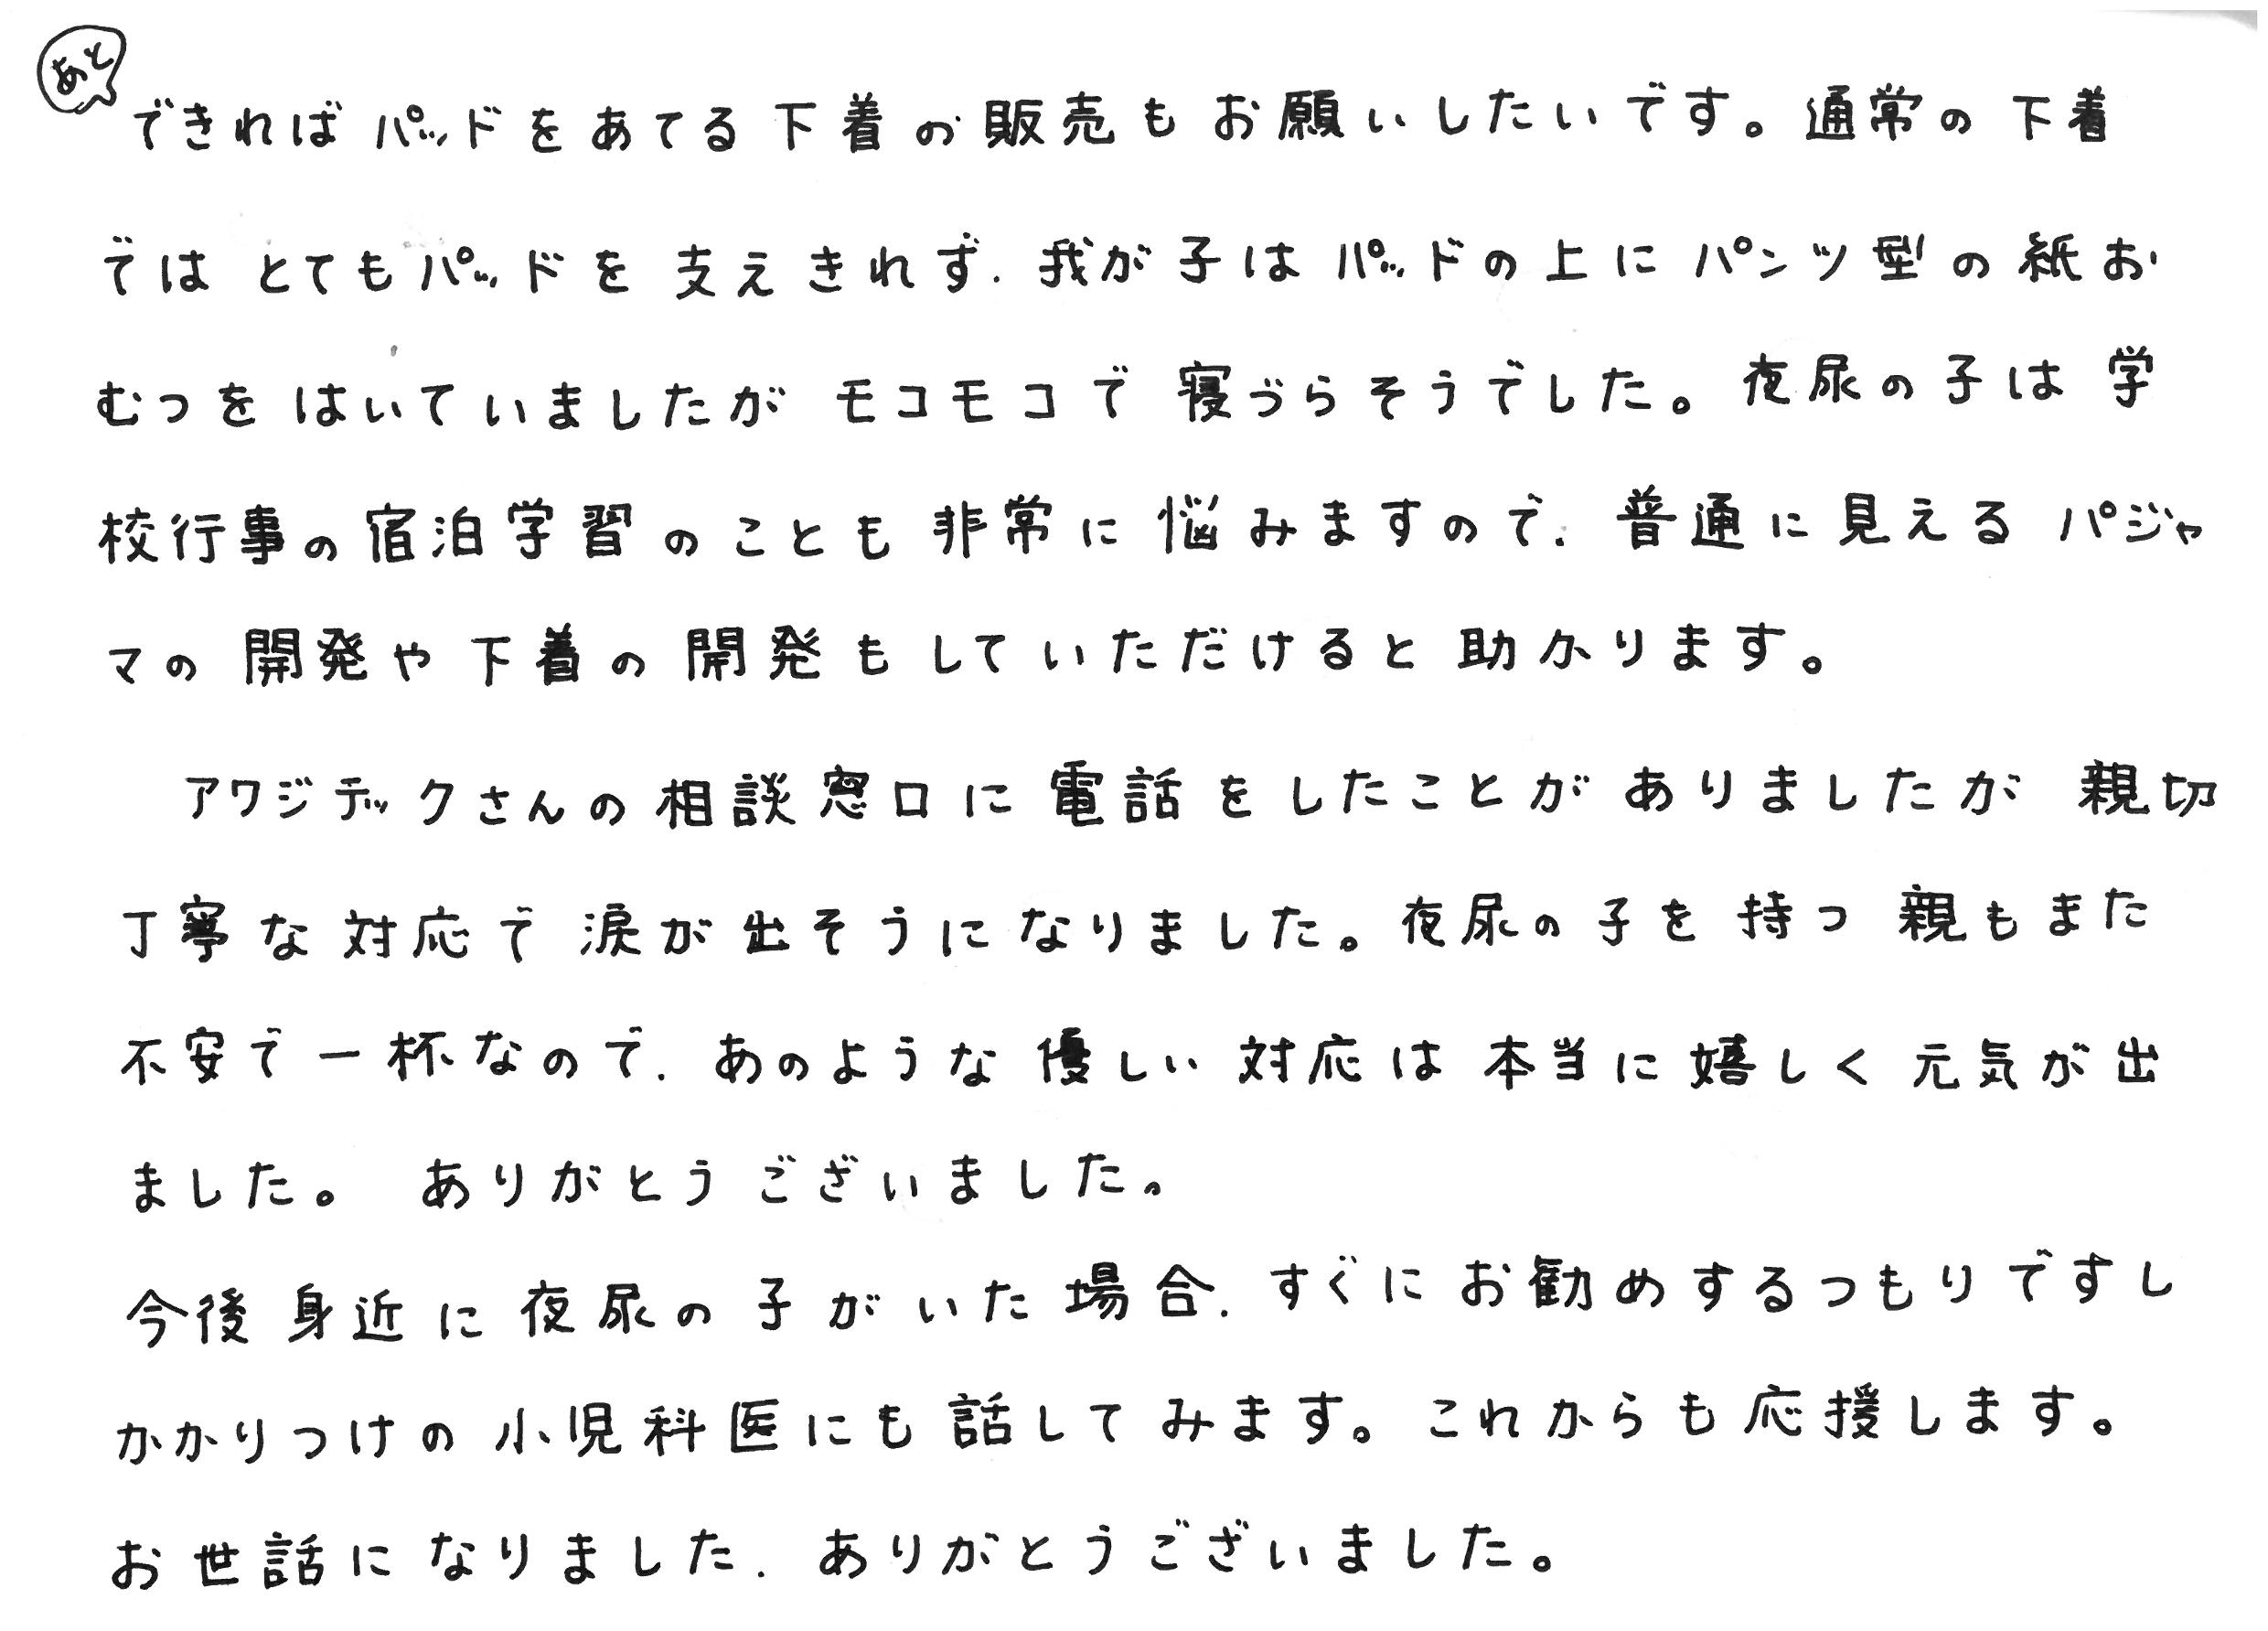 あと
できればパッドをあてる下着の販売もお願いしたいです。通常の下着
ではとてもパッドを支えきれず、我が子はパッドの上にパンツ型の紙お
むつをはいていましたがモコモコで寝づらそうでした。夜尿の子は学
校行事の宿泊学習のことも非常に悩みますので、普通に見えるパジャ
マの開発や下着の開発もしていただけると助かります。
アワジテックさんの相談窓口に電話をしたことがありましたが親切
丁寧な対応で涙が出そうになりました。夜尿の子を持つ親もまた
不安で一杯なので、あのような優しい対応は本当に嬉しく元気が出
ました。ありがとうございました。
今後身近に夜尿の子がいた場合、すぐにお勧めするつもりですし
かかりつけの小児科医にも話してみます。これからも応援します。
お世話になりました、ありがとうございました。